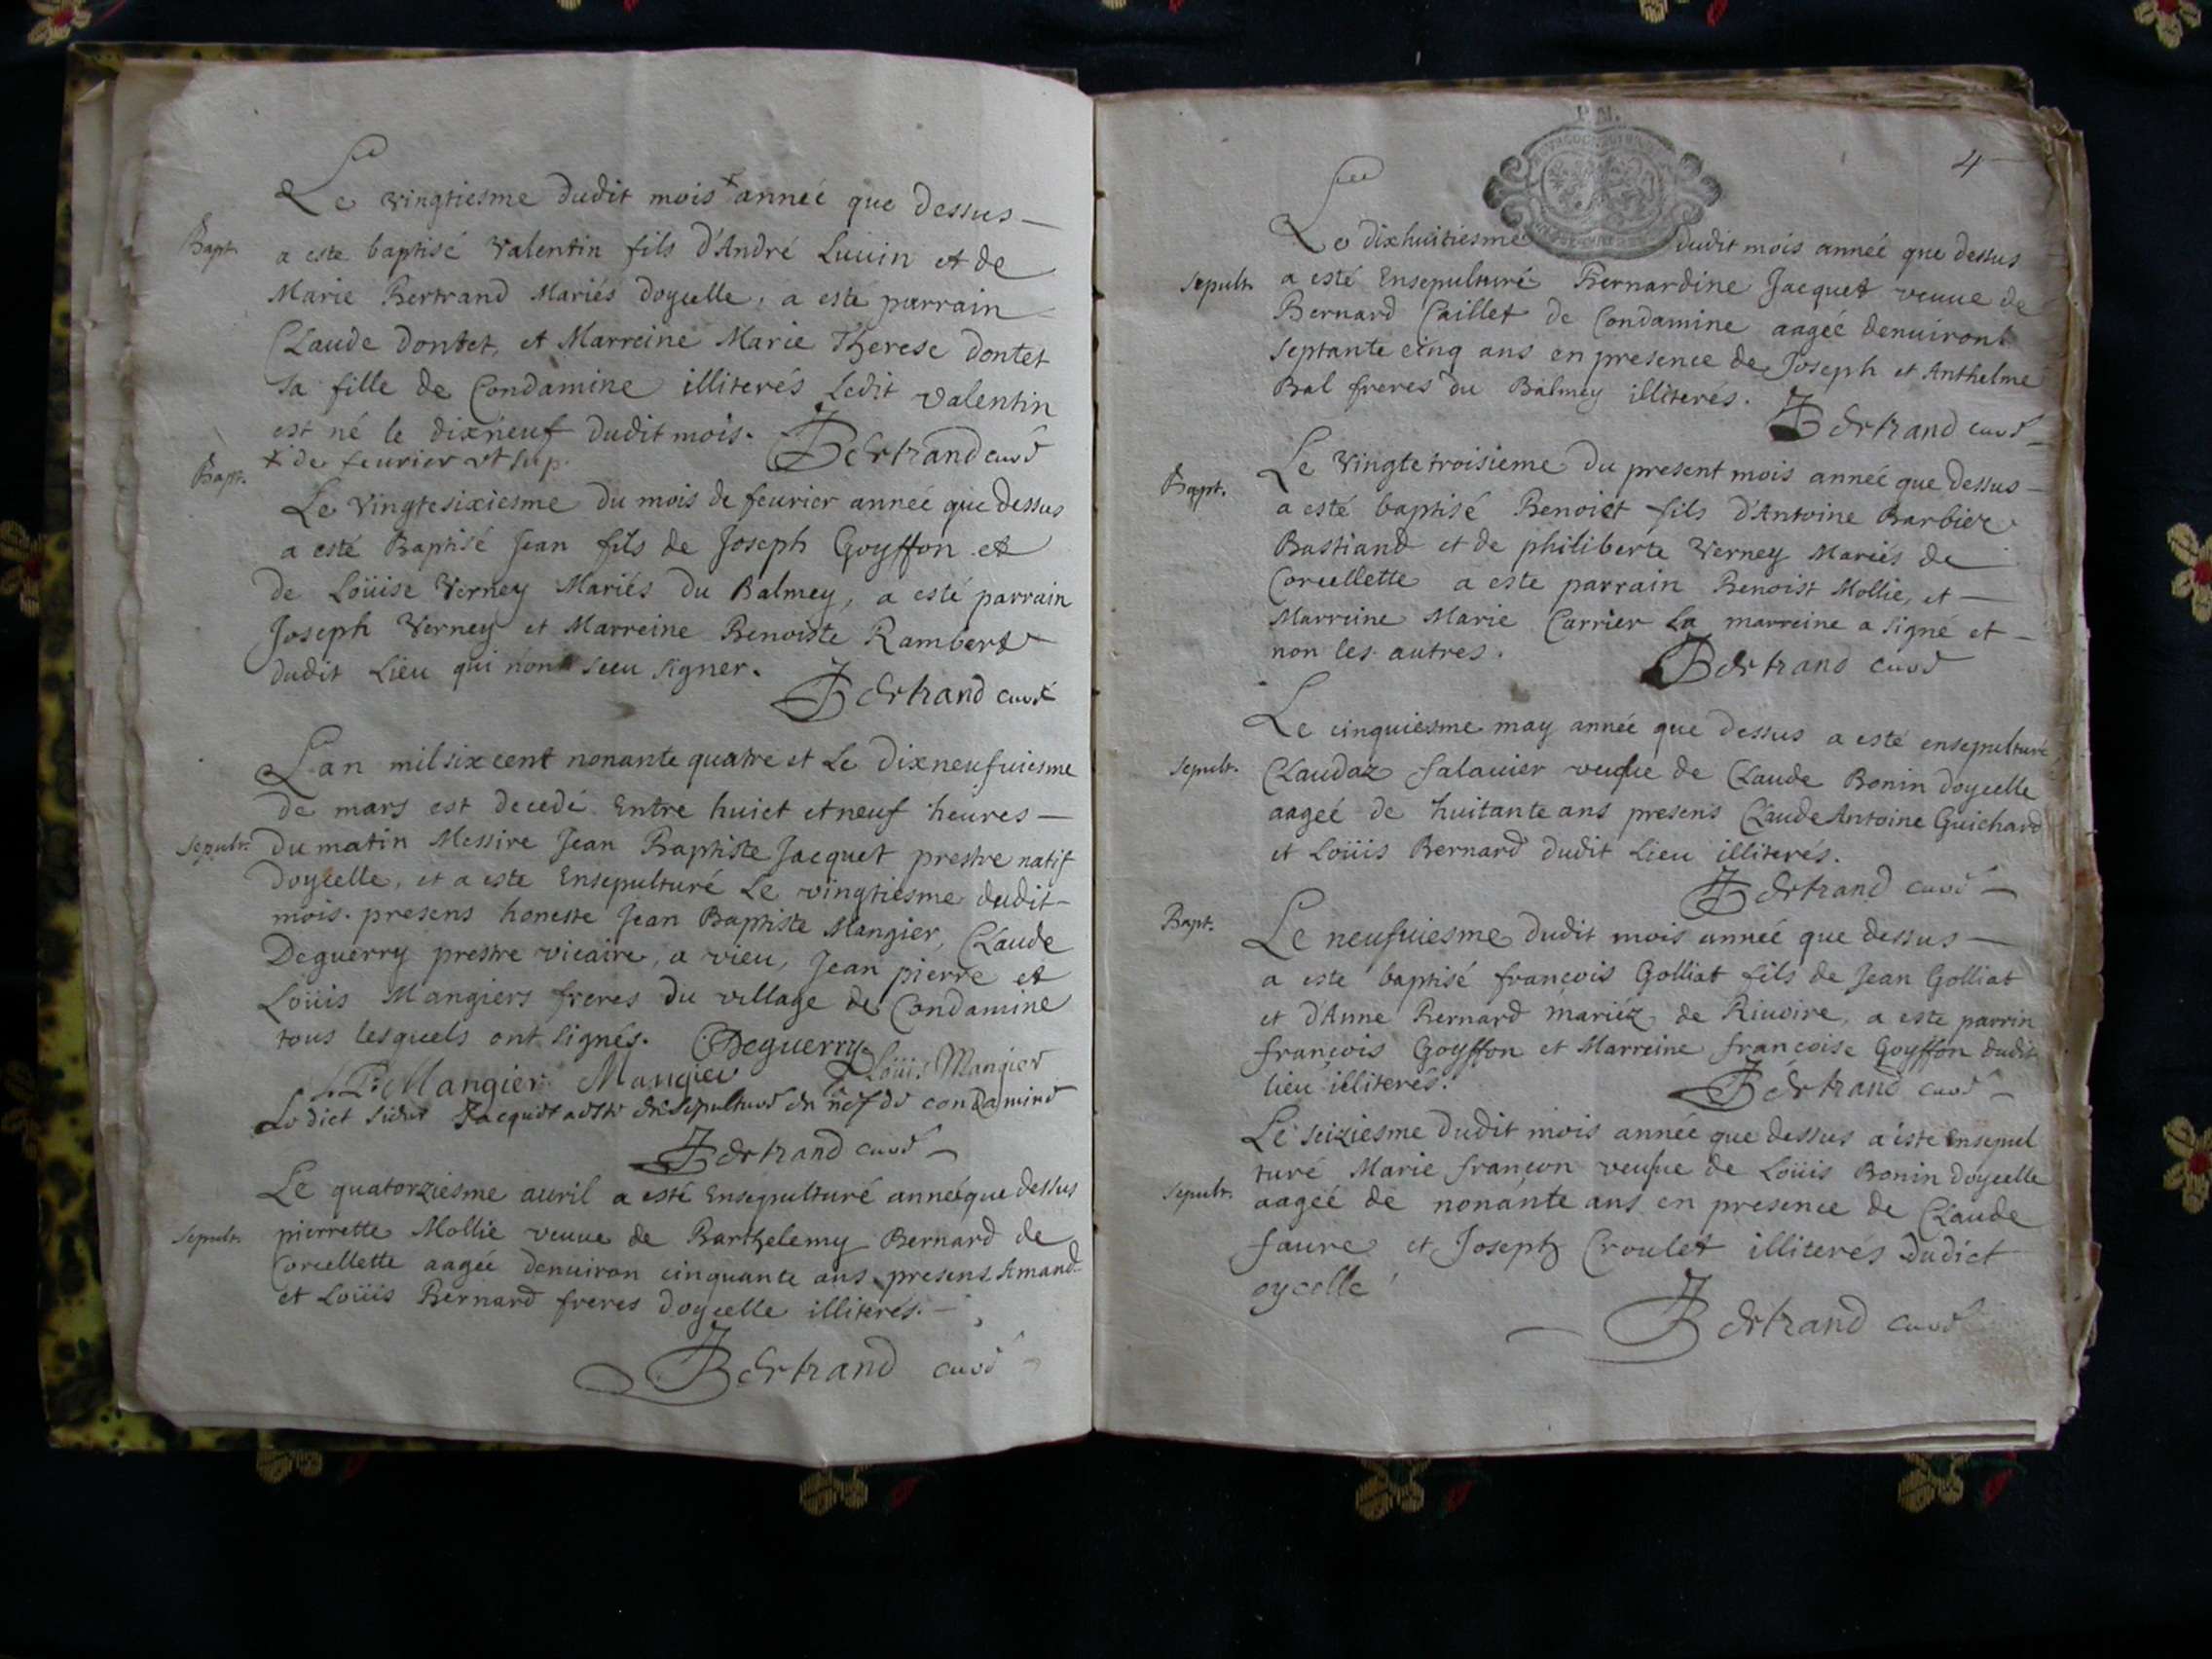 Le vingtiesme dudit mois + année que dessus
Bapt. a este baptisé Valentin fils d'André Luuin et de
Marie Bertrand Mariés doycelle, a esté parrain
Claude dontet, et Marreine Marie Therese dontet
sa fille de Condamine illiterés Ledit Valentin
est né le dixneuf dudit mois. Bertrand curé
+ de feurier ut sup.
Bapt. Le vingtesixiesme du mois de feurier année que dessus
a esté Baptisé Jean fils de Joseph Goyffon et
de Loüise Verney Mariés du Balmey, a esté parrain
Joseph Verney et Marreine Benoiste Rambert
dudit Lieu qui nont sceu signer.
Bertrand curé
Lan mil six cent nonante quatre et Le dixneufuiesme
de mars est decedé Entre huict et neuf heures
sepult. du matin Messire Jean Baptiste Jacquet prestre natif
doycelle, et a este Ensepulturé Le vingtiesme dudit
mois. presens honeste Jean Baptiste Mangier, Claude
Deguerry prestre vicaire, a vieu, Jean pierre et
Loüis Mangiers freres du village de Condamine
tous lesquels ont signés. Deguerry
J. P. Mangier Mangier Loüis Mangier
Le dict sieur Jacquet a este ensepulturé en nef de condamine
Bertrand curé
Le quatorziesme auril a esté Ensepulturé année que dessus
sepult. pierrette Mollie veuue de Barthelemy Bernard de
Corcellette aagée denuiron cinquante ans presens Amand
et Loüis Bernard freres doycelle illiterés.
Bertrand curé
4
Le dixhuitiesme dudit mois année que dessus
sepult. a esté Ensepulturé Bernardine Jacquet veuue de
Bernard Caillet de Condamine aagée denuiront
septante cinq ans en presence de Joseph et Anthelme
Bal freres du Balmey illiterés.
Bertrand curé
Le Vingtetroisieme du present mois année que dessus
Bapt. a esté baptisé Benoict fils d'Antoine Barbier
Bastiand et de philiberte Verney Mariés de
Corcellette a este parrain Benoist Mollie, et
Marreine Marie Carrier La marreine a signé et
non les autres. Bertrand curé
Le cinquiesme may année que dessus a esté ensepulturé
sepult. Claudaz Salauier veufue de Claude Bonin doycelle
aageé de huitante ans presens Claude Antoine Guichard
et Loüis Bernard dudit Lieu illiterés.
Bertrand curé
Bapt. Le neufuiesme dudit mois année que dessus
a este baptisé françois Golliat fils de Jean Golliat
et d'Anne Bernard mariéz de Riuoire, a este parrin
françois Goyffon et Marreine françoise Goyffon dudit
lieu illiterés. Bertrand curé
Le seiziesme dudit mois année que dessus a este Ensepul
turé Marie françon veufue de Loüis Bonin doycelle
sepult. aagée de nonante ans en presence de Claude
faure et Joseph Croulet illiterés dudict
oycelle
Bertrand curé